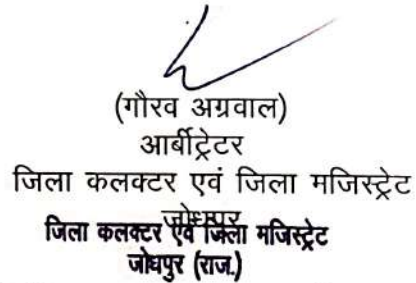 (गौरव अग्रवाल)
आर्बीट्रेटर
जिला कलक्टर एवं जिला मजिस्ट्रेट
जोधपुर
जिला कलक्टर एवं जिला मजिस्ट्रेट
जोधपुर (राज.)